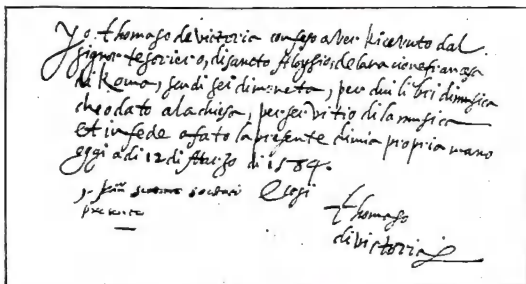 Yo thomaso de victoria confeso aver Ricevuto dal
signor tesoriero, di sancto Aloysio, de la natione franzesa
di Roma, scudi sei di moneta, per dui libri di musica
che o dato a la chiesa, per servitio di la musica
et in fede o fato la presente di mia propria mano
oggi a di 12 di Marzo di 1584.
presente
thomaso
di victoria